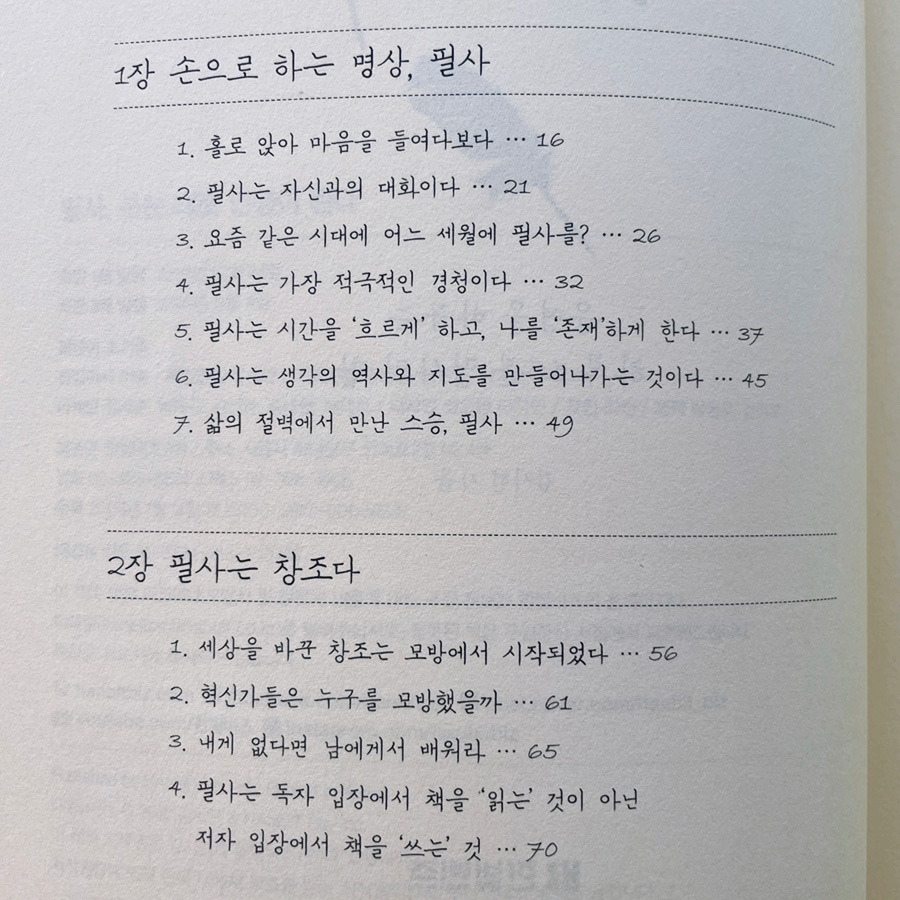 1장 손으로 하는 명상, 필사
1. 홀로 앉아 마음을 들여다보다 … 16
2. 필사는 자신과의 대화이다 … 21
3. 요즘 같은 시대에 어느 세월에 필사를? … 26
4. 필사는 가장 적극적인 경청이다 … 32
5. 필사는 시간을 ‘흐르게’ 하고, 나를 ‘존재’하게 한다 … 37
6. 필사는 생각의 역사와 지도를 만들어나가는 것이다 … 45
7. 삶의 절벽에서 만난 스승, 필사 … 49
2장 필사는 창조다
1. 세상을 바꾼 창조는 모방에서 시작되었다 … 56
2. 혁신가들은 누구를 모방했을까 … 61
3. 내게 없다면 남에게서 배워라 … 65
4. 필사는 독자 입장에서 책을 ‘읽는’ 것이 아닌
저자 입장에서 책을 ‘쓰는’ 것 … 70